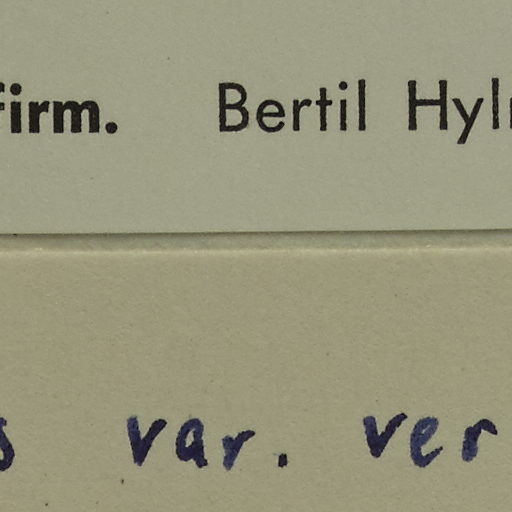 firm. Bertil Hyl
s var. ver